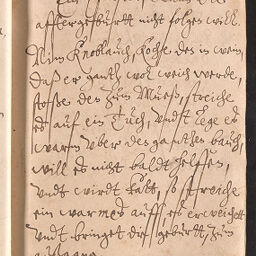 afftergeburtt nicht folgen will.
Nim Knoblauch, koche des in wein,
daß er gantz wol weich werde,
stoße den zum Mueß, streiche
es auf ein Tuch, vndt lege es
warm vber des gantzen bauch,
will es nicht baldt helffen,
vndt wirdt kalt, so streiche
ein warmes auff, es erweichett
vndt bringet die geburt, zum